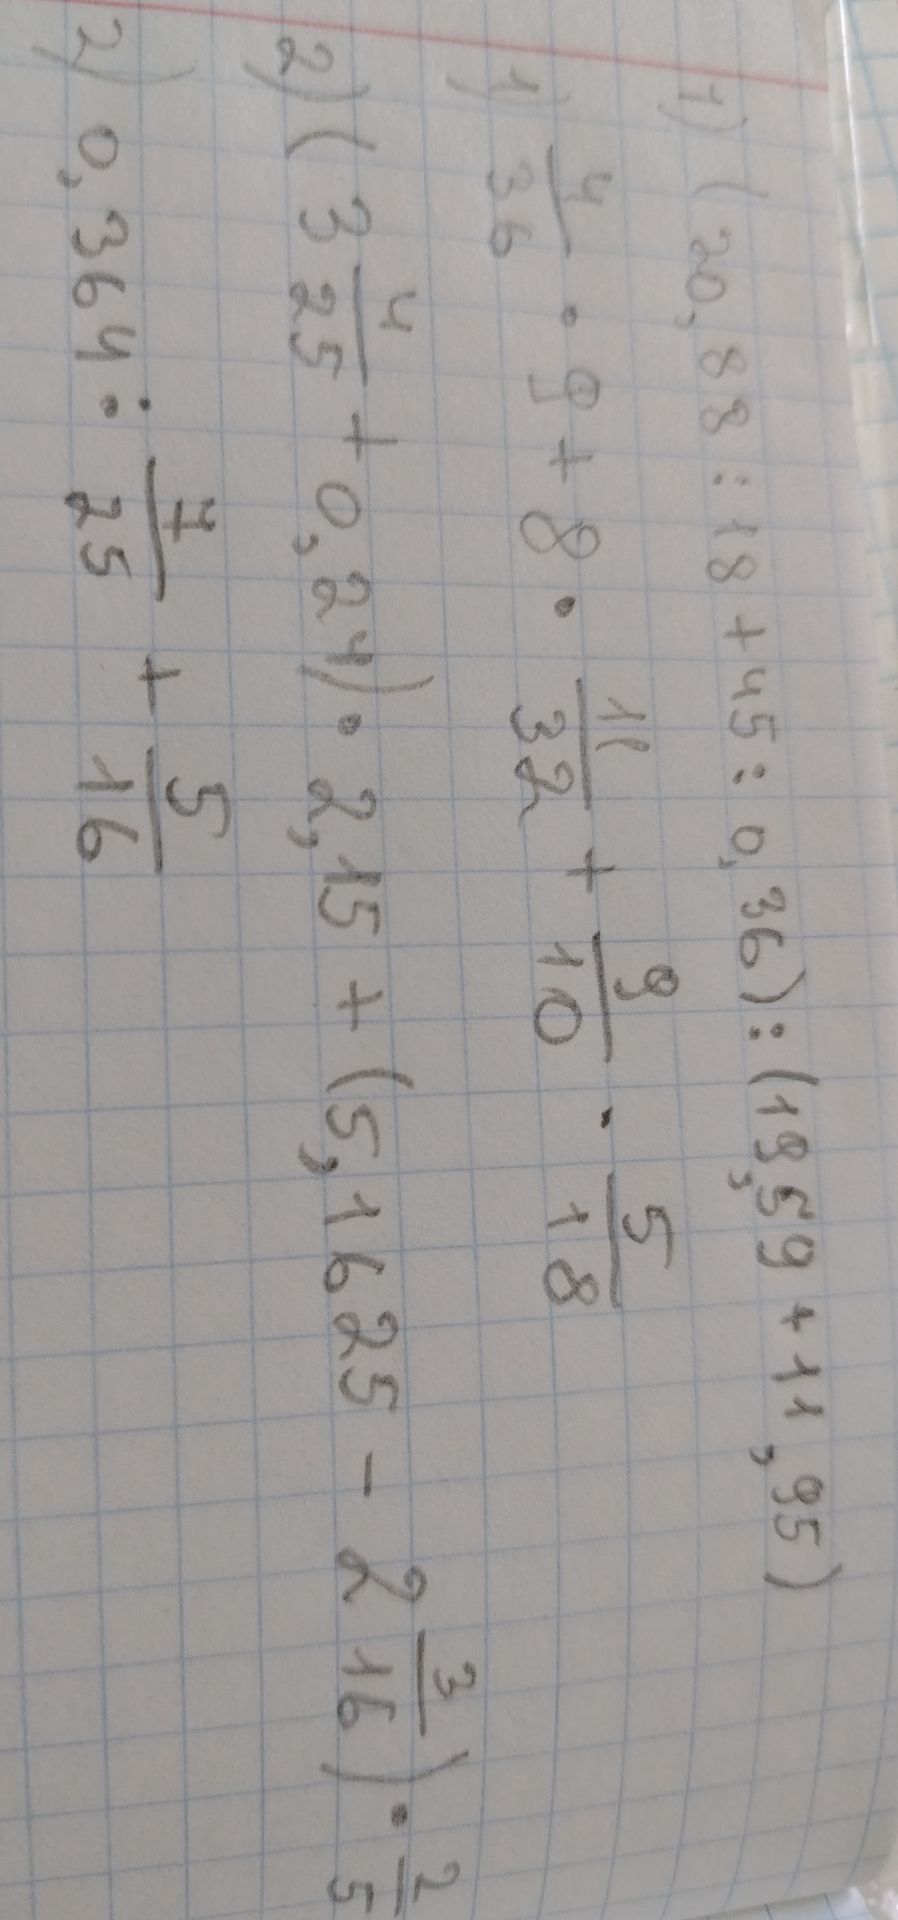 1) (20,88 : 18 + 45 : 0,36) : (19,59 + 11,95)
1) 4/36 · 9 + 8 · 11/32 + 9/10 · 5/18
2) (3 4/25 + 0,24) · 2,15 + (5,1625 - 2 3/16) · 2/5
2) 0,364 : 7/25 + 5/16